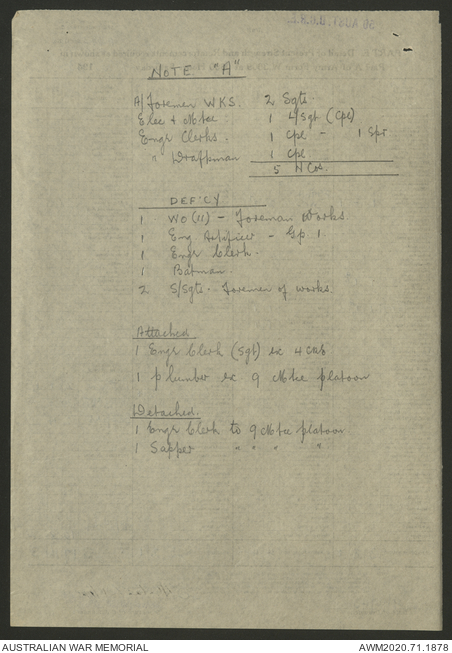 NOTE "A"
A/Foremen WKS. 2 Sgts.
Elec & Mtce 1 L/Sgt (Cpl)
Engr Clerks. 1 Cpl - 1 Spr
" Draftsman 1 Cpl
5 NCOs.
DEF'CY
1 WO(II) - Foreman Works
1 Eng Artificer - Gp 1
1 Engr Clerk.
1 Batman.
2 S/Sgts. Foremen of works.
Attached.
1 Engr Clerk (Sgt) ex 4 CRE
1 plumber ex 9 Mtce platoon
Detached.
1 Engr Clerk to 9 Mtce platoon
1 Sapper " " " "
AUSTRALIAN WAR MEMORIAL AWM2020.71.1878